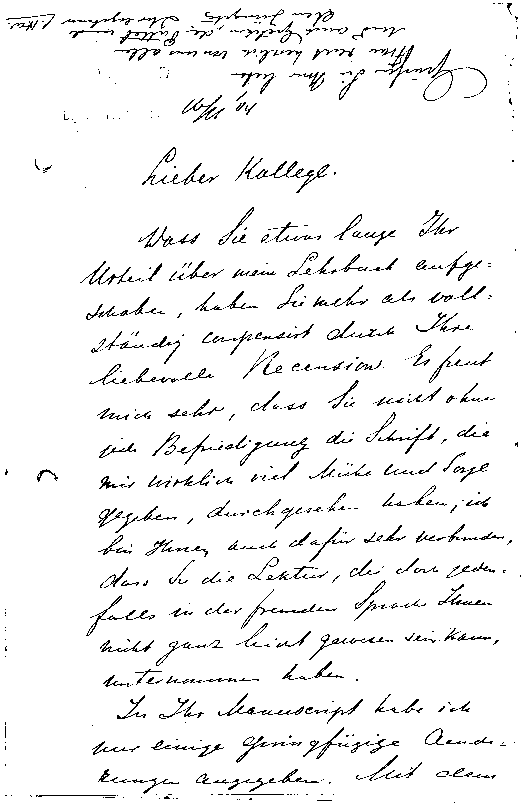 Grüssen Sie Ihre liebe
Frau recht herzlich von uns allen
und auch
10/XI
Lieber Kollege.
Dass Sie etwas lange Ihr
Urteil über mein Lehrbuch aufge-
schoben, haben Sie mehr als voll-
ständig compensirt durch Ihre
liebevolle Recension. Es freut
mich sehr, dass Sie nicht ohne
jede Befriedigung die Schrift, die
mir wirklich viel Mühe und Sorge
gegeben, durchgesehen haben; ich
bin Ihnen auch dafür sehr verbunden,
dass Sie die Lektür, die doch jeden-
falls in der fremden Sprache Ihnen
nicht ganz leicht gewesen sein kann,
unternommen haben.
In Ihr Manuscript habe ich
nur einige geringfügige Aende-
rungen angegeben. Mit dem